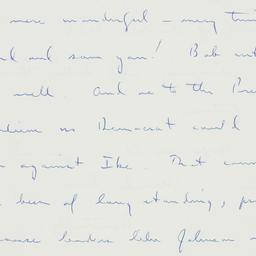 were wonderful – many
and saw you! Bob
well. And as to the
no Democrat could
against Ike. That
been of long standing,
leaders like Johnson